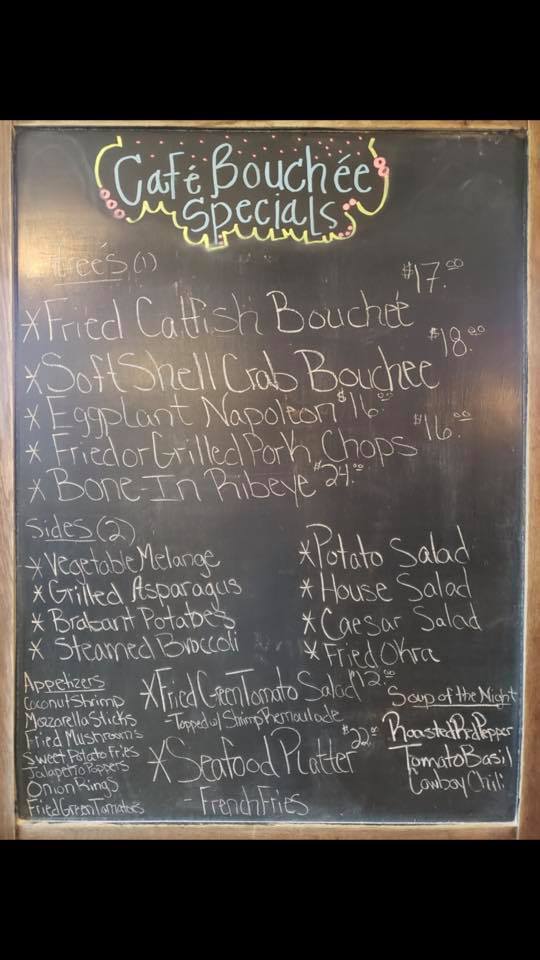 Café Bouchée
Specials
Entrée's (1)
*Fried Catfish Bouchée $17.00
*Soft Shell Crab Bouchee $18.00
* Eggplant Napoleon $16.00
* Fried or Grilled Pork Chops $16.00
* Bone-In Ribeye $24.00
Sides (2)
*Vegetable Melange
*Grilled Asparagus
* Brabant Potatoes
* Steamed Broccoli
*Potato Salad
* House Salad
* Caesar Salad
* Fried Okra
Appetizers
Coconut Shrimp
Mozzarella Sticks
Fried Mushrooms
Sweet Potato Fries
Jalapeño Poppers
Onion Rings
Fried Green Tomatoes
*Fried Green Tomato Salad $12.00
-Topped w/ Shrimp Remoulade
*Seafood Platter $22.00
- French Fries
Soup of the Night
Roasted Red Pepper
Tomato Basil
Cowboy Chili